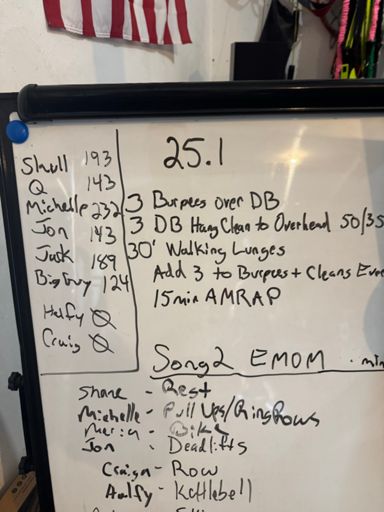 25.1
Skull 193
Q 143
Michelle 232
Jon 143
Jack 189
Big Guy 124
Halfy
Craig
3 Burpees over DB
3 DB Hang Clean to Overhead 50/35
30' Walking Lunges
Add 3 to Burpees + Cleans
15 min AMRAP
Song 2 EMOM · min
Shane - Rest
Michelle - Pull Ups/Ring Rows
- Bike
Jon - Deadlifts
Craign - Row
Aalfy - Kettlebell